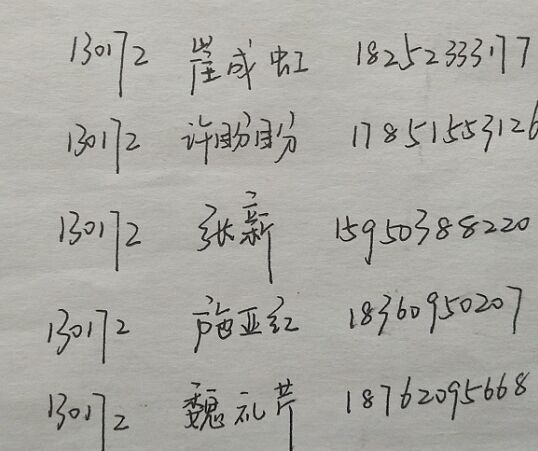 130172 崔成虹 18252333177
130172 许盼盼 17851553126
130172 张新 15950388220
130172 施亚红 18360950207
130172 魏礼芹 18762095668